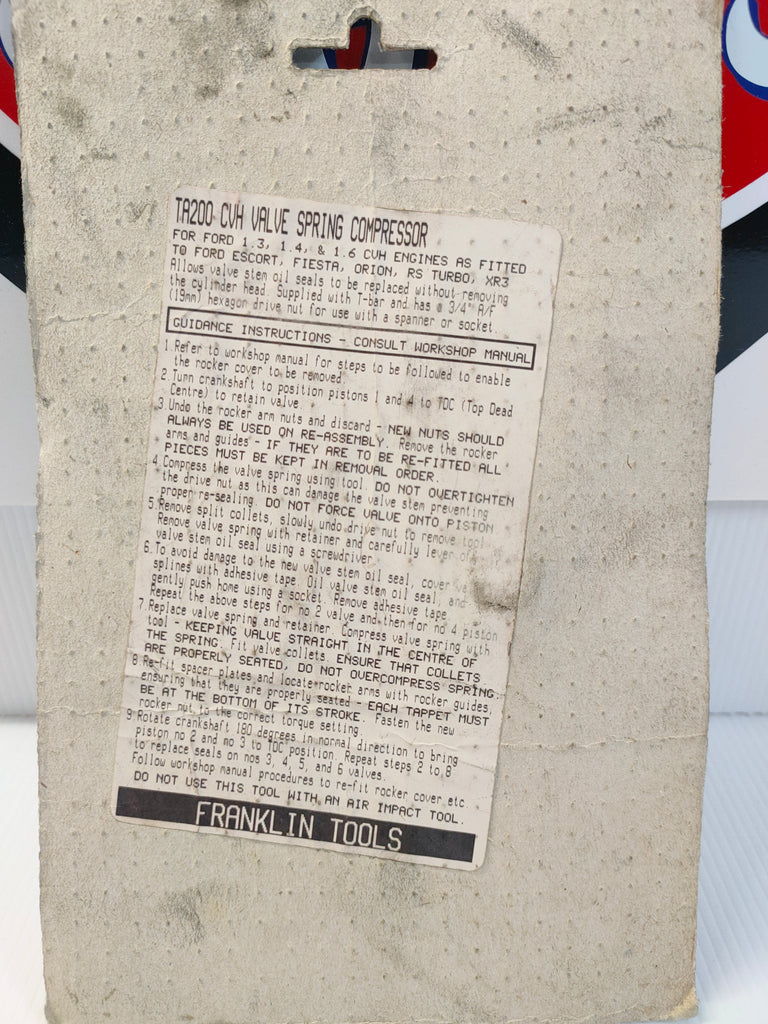 TA200 CVH VALVE SPRING COMPRESSOR
FOR FORD 1.3, 1.4, & 1.6 CVH ENGINES AS FITTED
TO FORD ESCORT, FIESTA, ORION, RS TURBO, XR3
Allows valve stem oil seals to be replaced without removing
the cylinder head. Supplied with T-bar and has a 3/4" A/F
(19mm) hexagon drive nut for use with a spanner or socket.
GUIDANCE INSTRUCTIONS - CONSULT WORKSHOP MANUAL
1. Refer to workshop manual for steps to be followed to enable
the rocker cover to be removed.
2. Turn crankshaft to position pistons 1 and 4 to TDC (Top Dead
Centre) to retain valve.
3. Undo the rocker arm nuts and discard - NEW NUTS SHOULD
ALWAYS BE USED ON RE-ASSEMBLY. Remove the rocker
arms and guides - IF THEY ARE TO BE RE-FITTED ALL
PIECES MUST BE KEPT IN REMOVAL ORDER.
4. Compress the valve spring using tool. DO NOT OVERTIGHTEN
the drive nut as this can damage the valve stem preventing
proper re-sealing. DO NOT FORCE VALVE ONTO PISTON
5. Remove split collets, slowly undo drive nut to remove tool.
Remove valve spring with retainer and carefully lever off
valve stem oil seal using a screwdriver.
6. To avoid damage to the new valve stem oil seal, cover
splines with adhesive tape. Oil valve stem oil seal, and
gently push home using a socket. Remove adhesive tape.
Repeat the above steps for no 2 valve and then for no 4 piston
7. Replace valve spring and retainer. Compress valve spring with
tool - KEEPING VALVE STRAIGHT IN THE CENTRE OF
THE SPRING. Fit valve collets. ENSURE THAT COLLETS
ARE PROPERLY SEATED, DO NOT OVERCOMPRESS SPRING.
8 Re-fit spacer plates and locate rocker arms with rocker guides,
ensuring that they are properly seated - EACH TAPPET MUST
BE AT THE BOTTOM OF ITS STROKE. Fasten the new
rocker nut to the correct torque setting.
9. Rotate crankshaft 180 degrees in normal direction to bring
piston no 2 and no 3 to TDC position. Repeat steps 2 to 8
to replace seals on nos 3, 4, 5, and 6 valves.
Follow workshop manual procedures to re-fit rocker cover etc
DO NOT USE THIS TOOL WITH AN AIR IMPACT TOOL.
FRANKLIN TOOLS